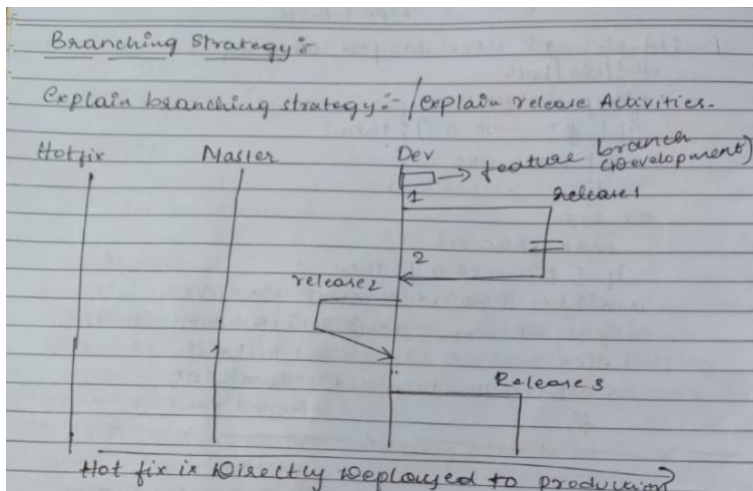 Branching Strategy:-
Explain branching strategy:- / Explain release Activities.
Hotfix Master Dev
→ feature branch
(Development)
1
Release1
2
release2
Release3
Hot fix is Directly Deployed to production